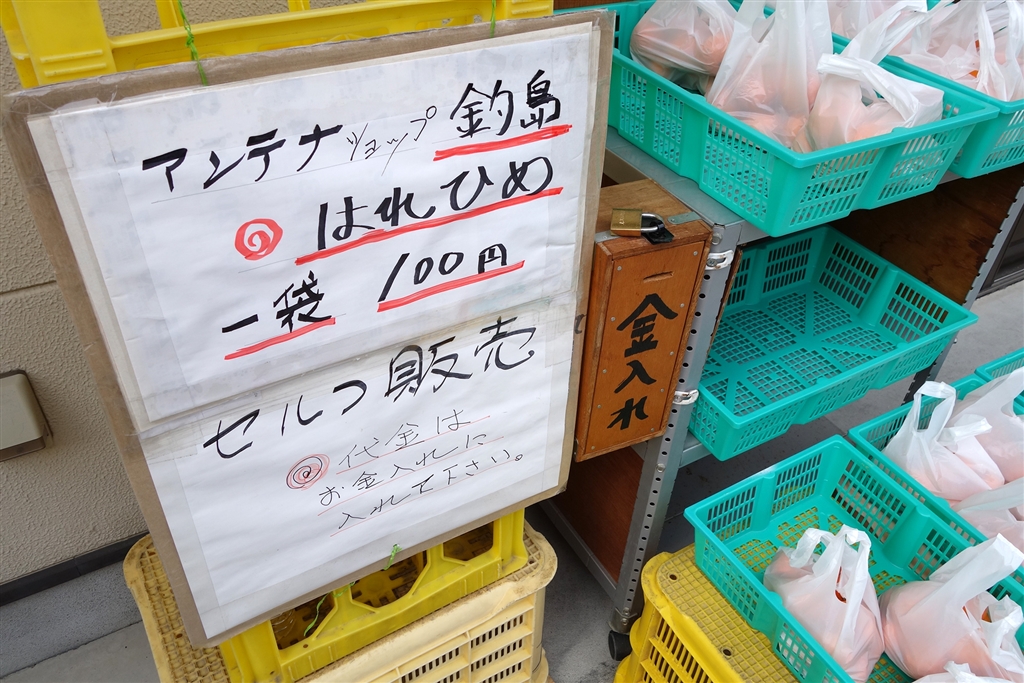 アンテナショップ 釣島
はれひめ
一袋 100円
セルフ販売
代金は
お金入れに
入れて下さい。
金入れ